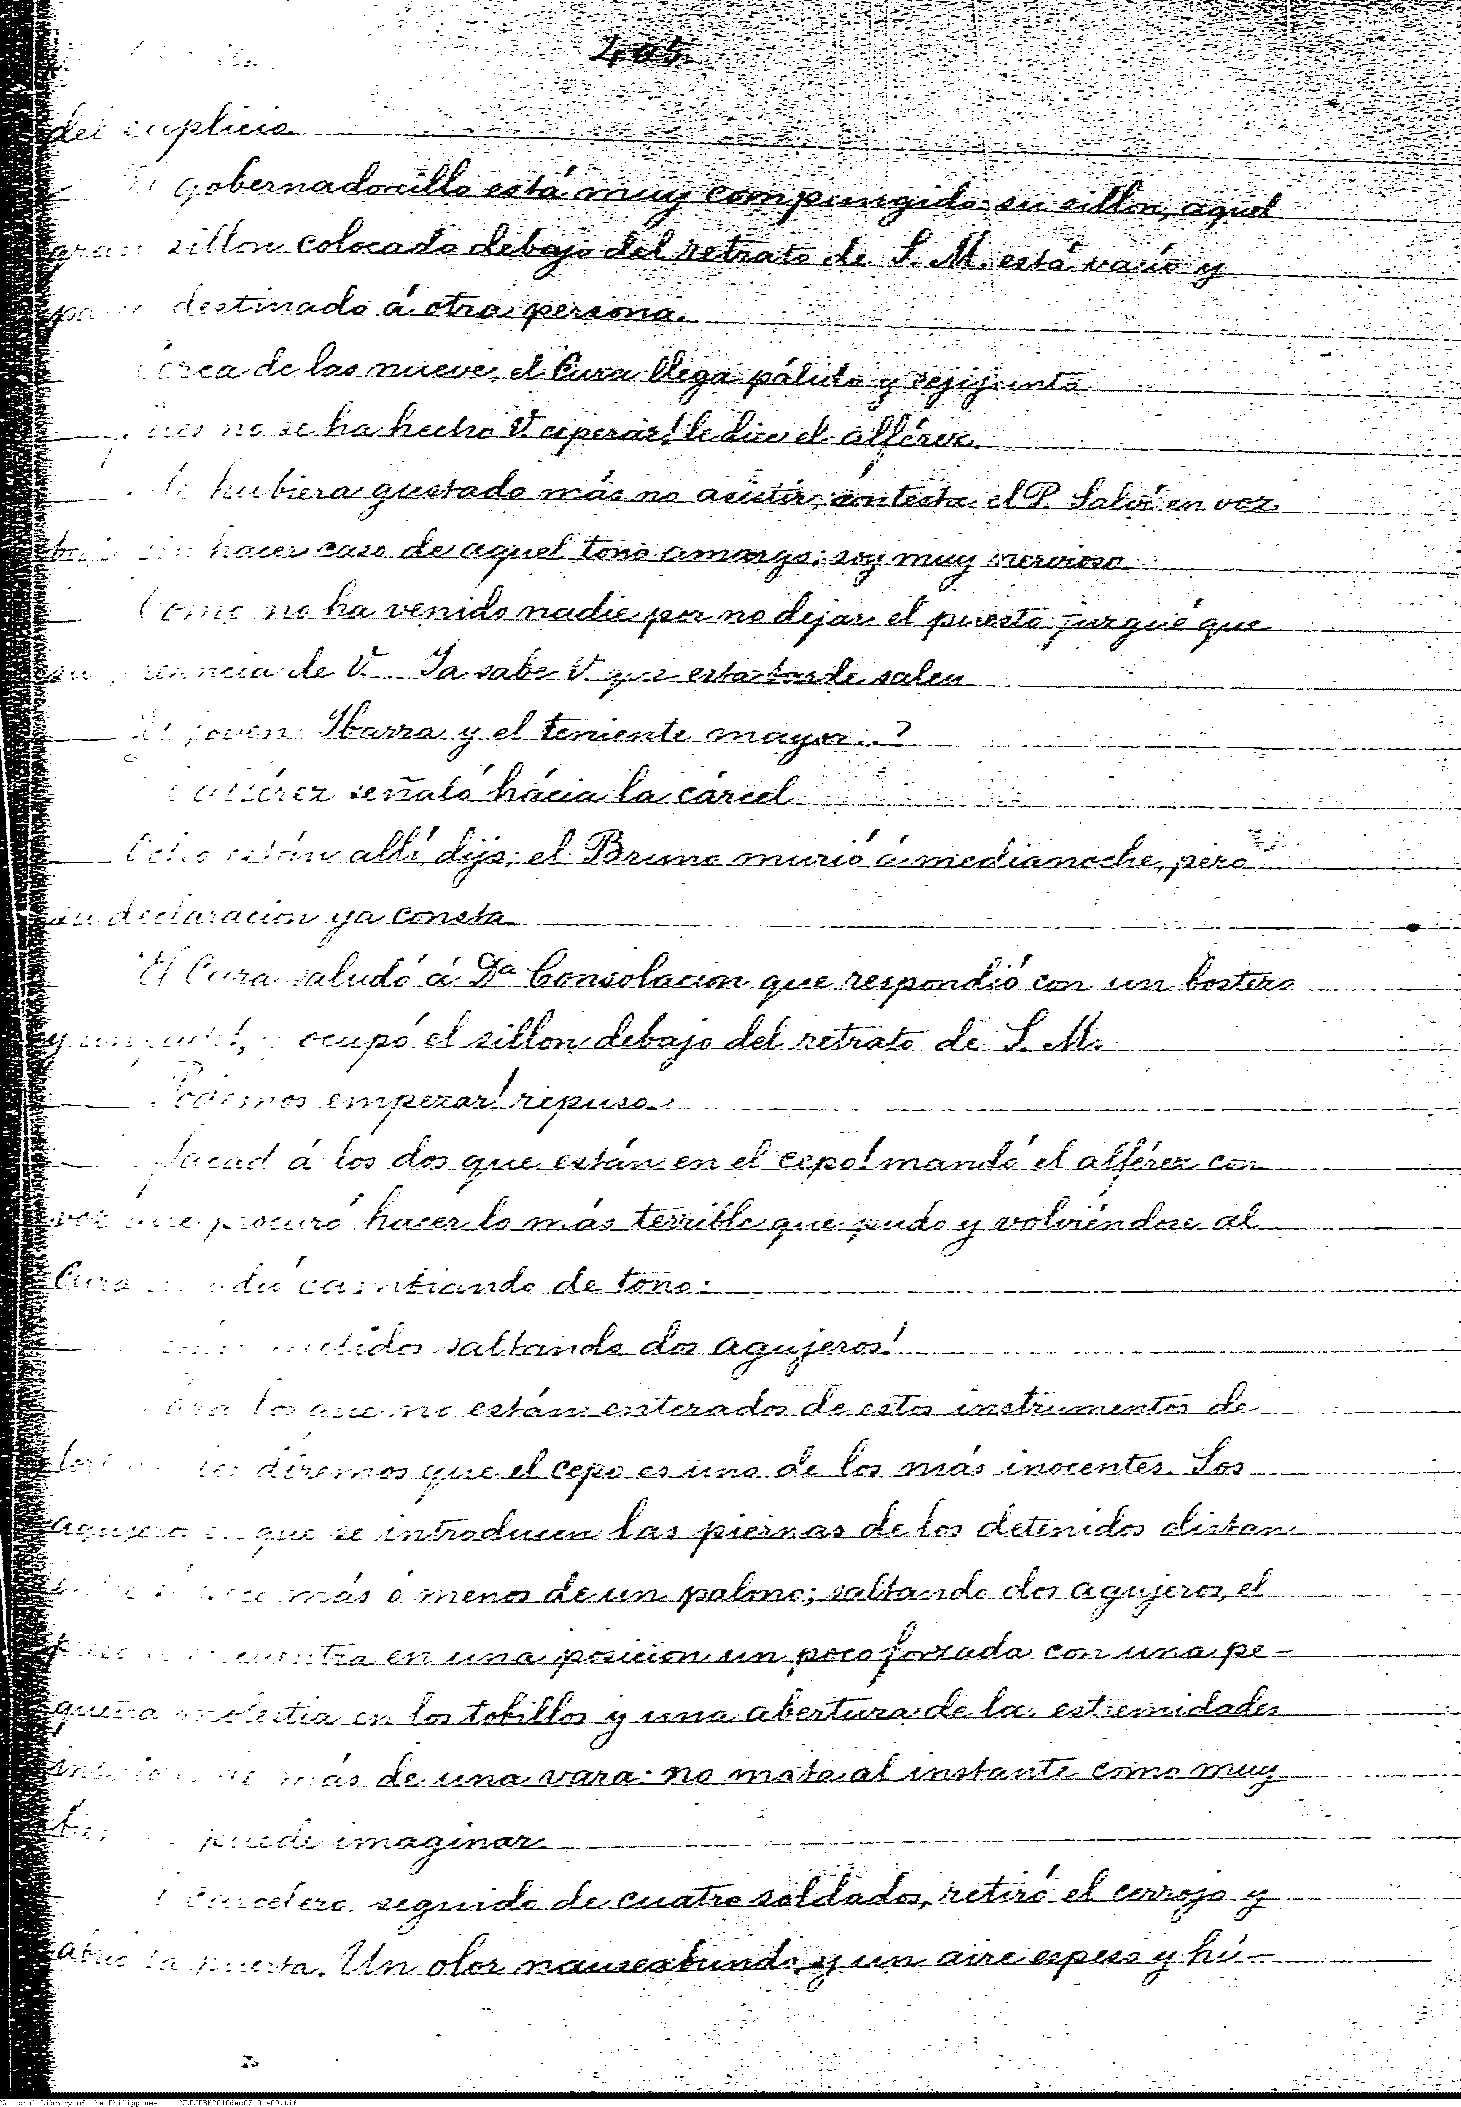 405
del suplicio
El gobernadorcillo está muy compungido: su sillon, aquel
gran sillon colocado debajo del retrato de S. M. está vacío y
destinado á otra persona.
Cerca de las nueve, el Cura llega pálido y cejijunto
Pues no se ha hecho V. esperar! le dice el alférez.
Me hubiera gustado más no asistir, contesta el P. Salví en voz
baja sin hacer caso de aquel tono amargo; soy muy nervioso
Como no ha venido nadie por no dejar el puesto juzgué que
su presencia de V. Ya sabe V. que esta tarde salen
El joven Ibarra y el teniente mayor..?
El alférez señaló hácia la cárcel
Ocho están allí, dijo; el Bruno murió á medianoche, pero
su declaracion ya consta
El Cura saludó á Dª Consolacion que respondió con un bostezo
y un ocupó el sillon debajo del retrato de S. M.
Podemos empezar! repuso.
Sacad á los dos que están en el cepo! mandó el alférez con
voz que procuró hacer lo más terrible que pudo y volviéndose al
Cura cambiando de tono:
Están metidos saltando dos agujeros!
Para los que no están enterados de estos instrumentos de
diremos que el cepo es uno de los más inocentes. Los
agujeros en que se introducen las piernas de los detenidos distan
entre sí poco más ó menos de un palmo; saltando dos agujeros, el
preso se encuentra en una posicion un poco forzada con una pe-
queña molestia en los tobillos y una abertura de la estremidades
inferiores de más de una vara: no mata al instante como muy
bien puede imaginar.
El carcelero seguido de cuatro soldados, retiró el cerrojo y
abrió la puerta. Un olor nauseabundo y un aire espeso y hú-